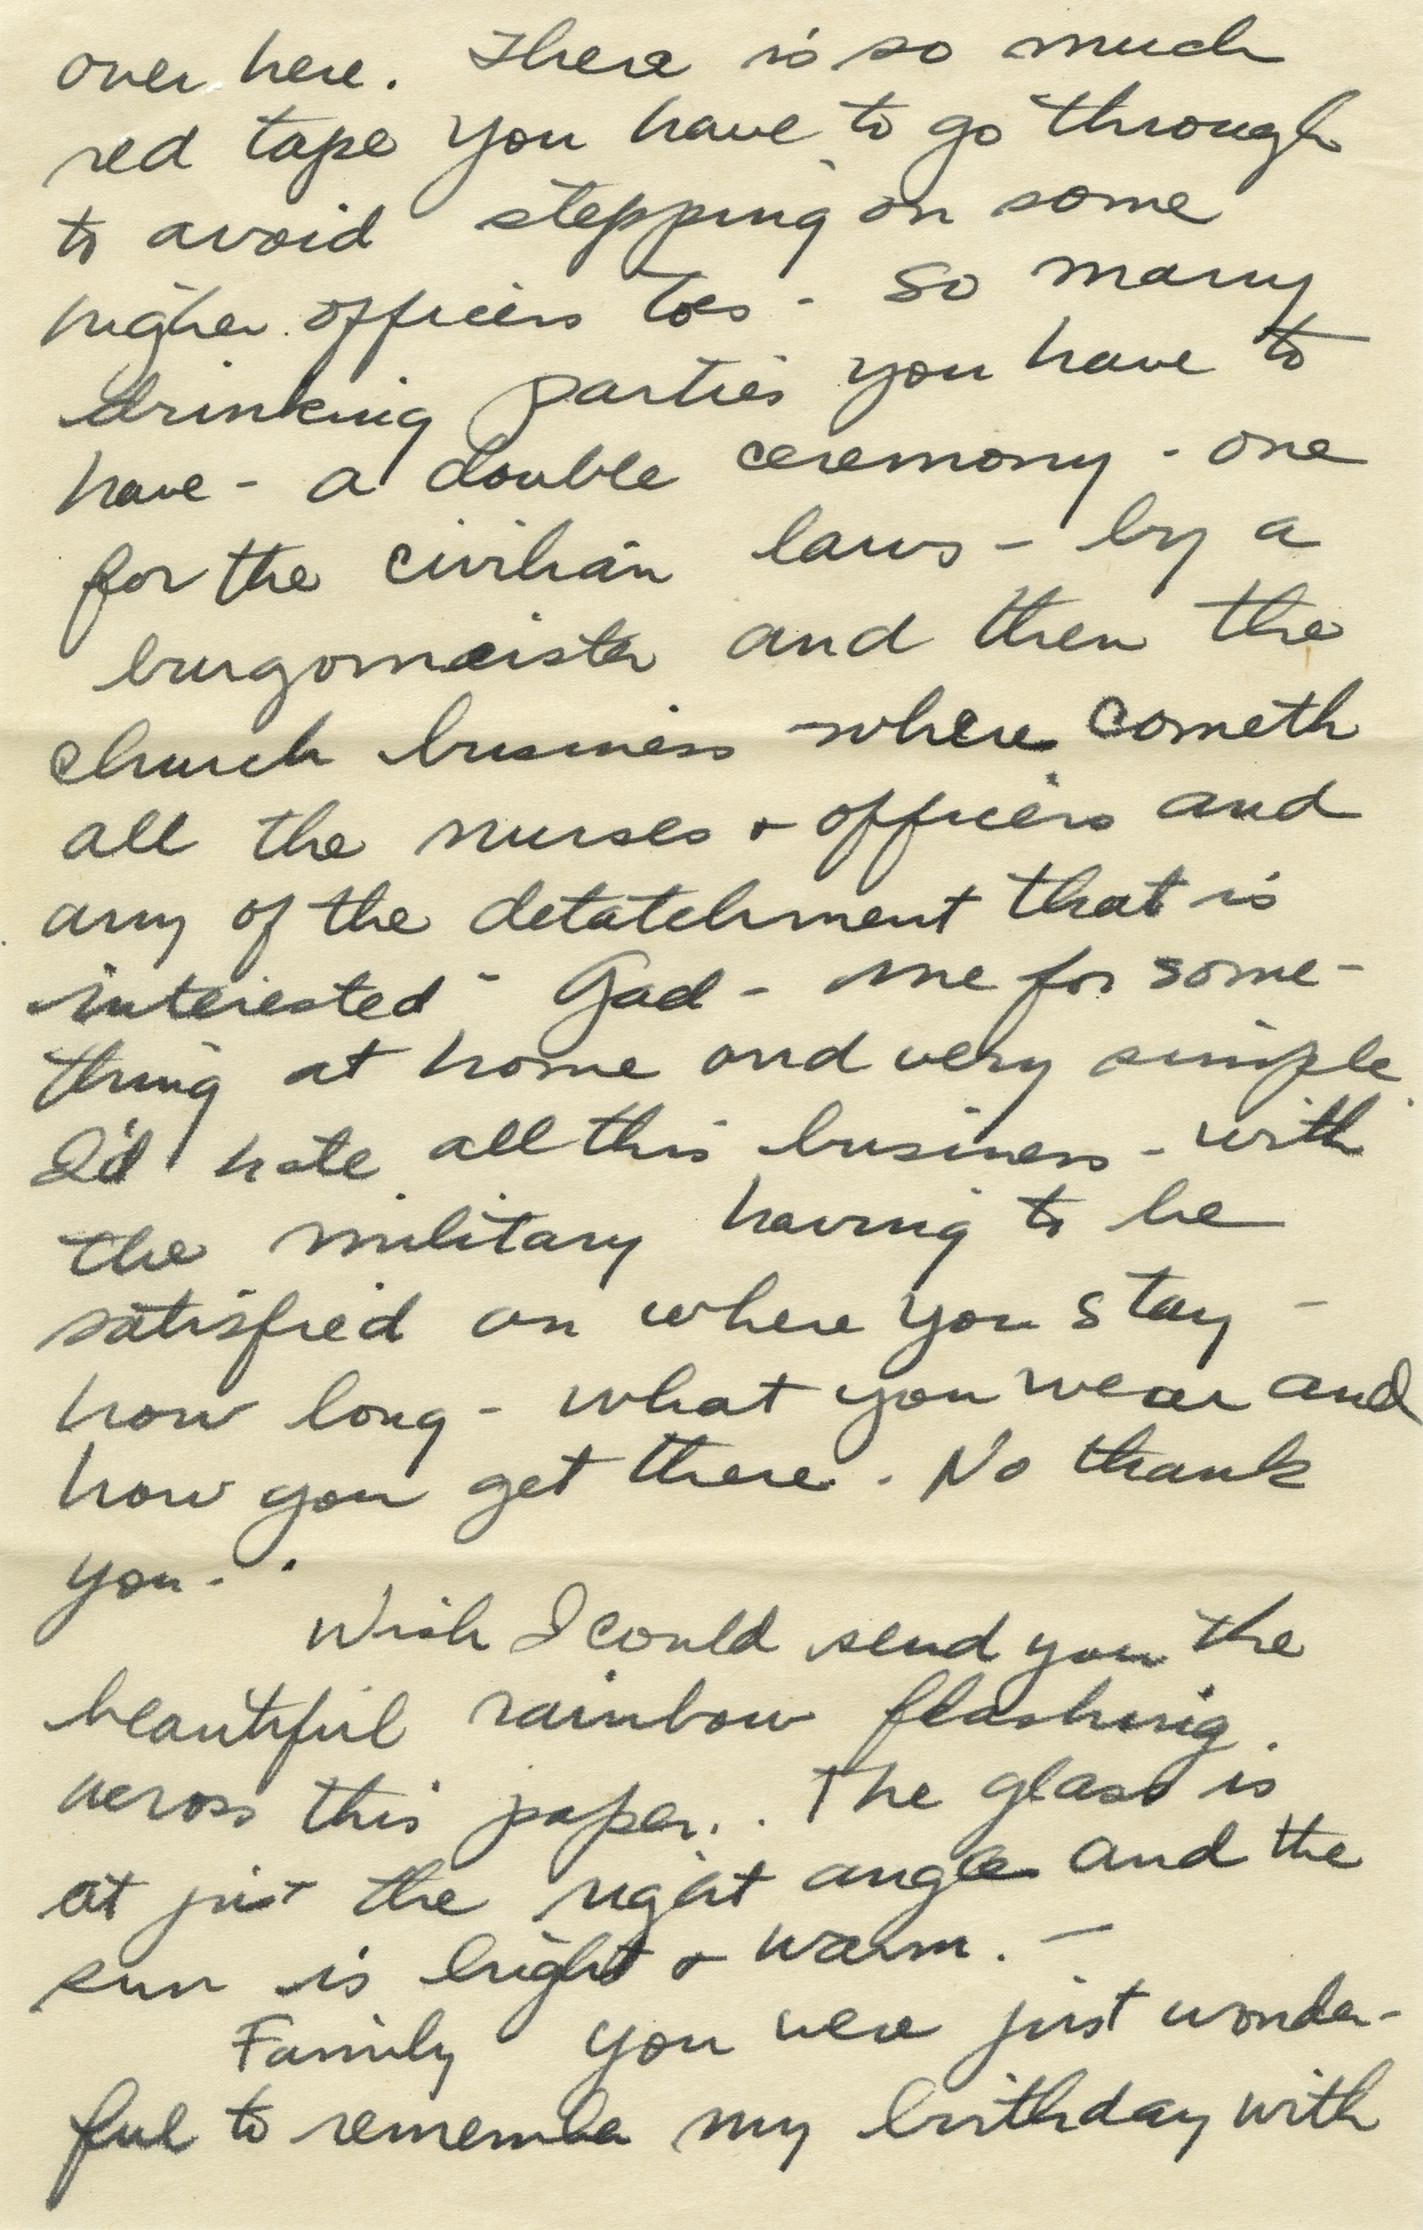 over here. There is so much
red tape you have to go through
to avoid stepping on some
higher officers toes - so many
drinking parties you have to
have - a double ceremony - one
for the civilian laws - by a
burgomeister and then the
church business where cometh
all the nurses + officers and
any of the detatchment that is
interested - Gad - me for some-
thing at home and very simple.
I'd hate all this business - with
the military having to be
satisfied on where you stay -
how long - what you wear and
how you get there. No thank
you - .
Wish I could send you the
beautiful rainbow flashing
across this paper. . The glass is
at just the right angle and the
sun is bright + warm. -
Family you were just wonder-
ful to remember my birthday with